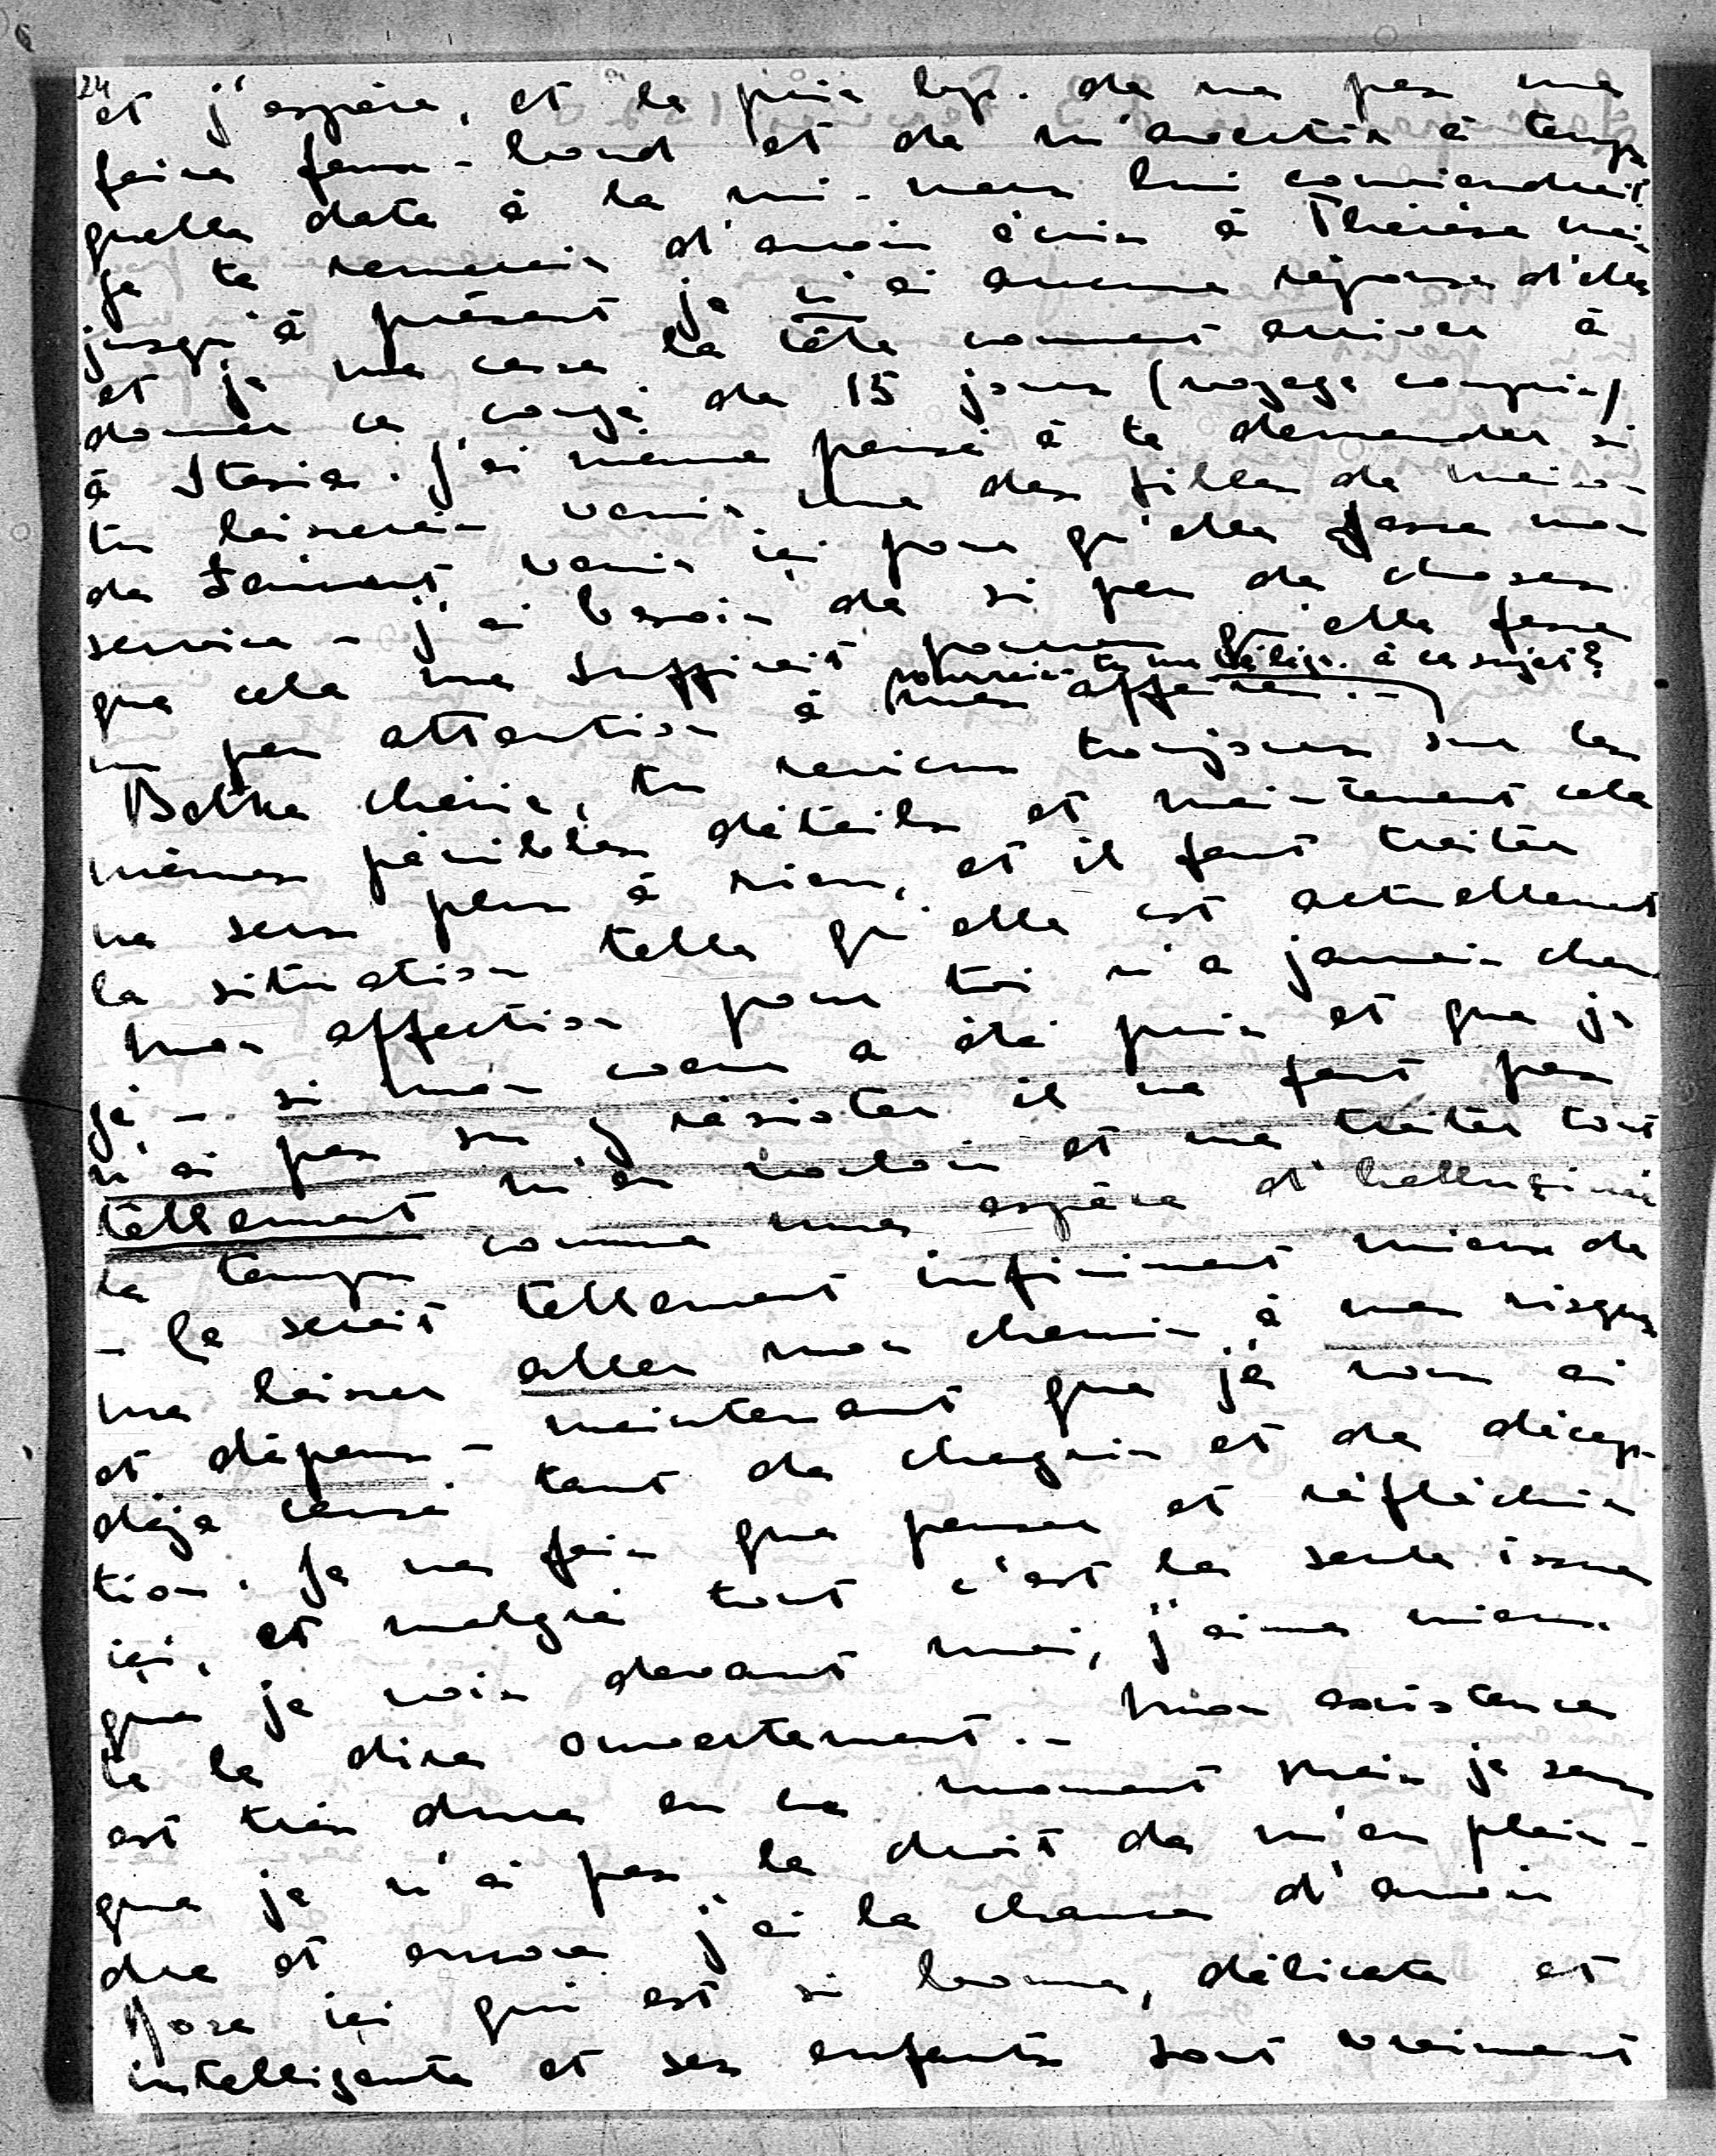 24
et j'espère, et le prie de ne pas me
faire faux-bond et de m'avertir à temps
quelle date à la mi-mars lui conviendrait.
Je te remercie d'avoir écrit à Thérèse mais
jusqu'à présent je n'ai aucune réponse d'elle
et je me casse la tête comment arriver à
donner ce congé de 15 jours (voyage compris)
à Stasia. J'ai même pensé à te demander si
tu laisserais venir une des filles de maison
de venir ici pour qu'elle fasse mon
service - j'ai besoin de si peu de choses
que cela me suffirait pourvu qu'elle fasse
pourrais-tu me télégr. à ce sujet?
un peu attention à mes affaires.-
chérie, tu reviens toujours sur les
mêmes pénibles détails et maintenant cela
ne sers plus à rien, et il faut traiter
la situation telle qu'elle est actuellement
Mon affection pour toi n'a jamais chan-
gé, - si mon coeur a été pris et que je
n'ai pas su y résister il ne faut pas
tellement m'en vouloir et me traiter tout
le temps comme une espèce d'halluciné
- Ce serait tellement infiniment mieux de
me laisser aller mon chemin, à mes risques
et dépens - maintenant que je vous ai
déjà causé tant de chagrin et de décep-
tion. Je ne fais que penser et réfléchir
ici, et malgré tout c'est la seule issue
que je vois devant moi, j'aime mieux
te le dire ouvertement.- Mon existence
est très dure en ce moment mais je sens
que je n'ai pas le droit de m'en plain-
dre et encore j'ai la chance d'avoir
ici qui est si bonne, délicate et
intelligente et ses enfants sont vraiment